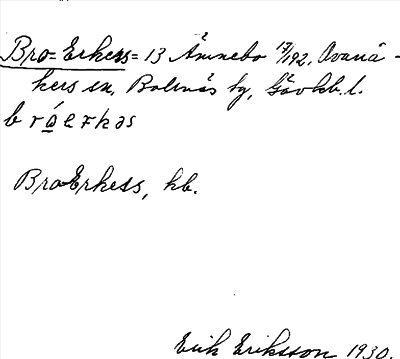 Bro=Erkers= 13 Ämnebo 17/192, Ovanå-
kers sn, Bollnäs tg, Gävleb. l.
bråerkəs
BroErkess, hb.
Erik Eriksson 1930.